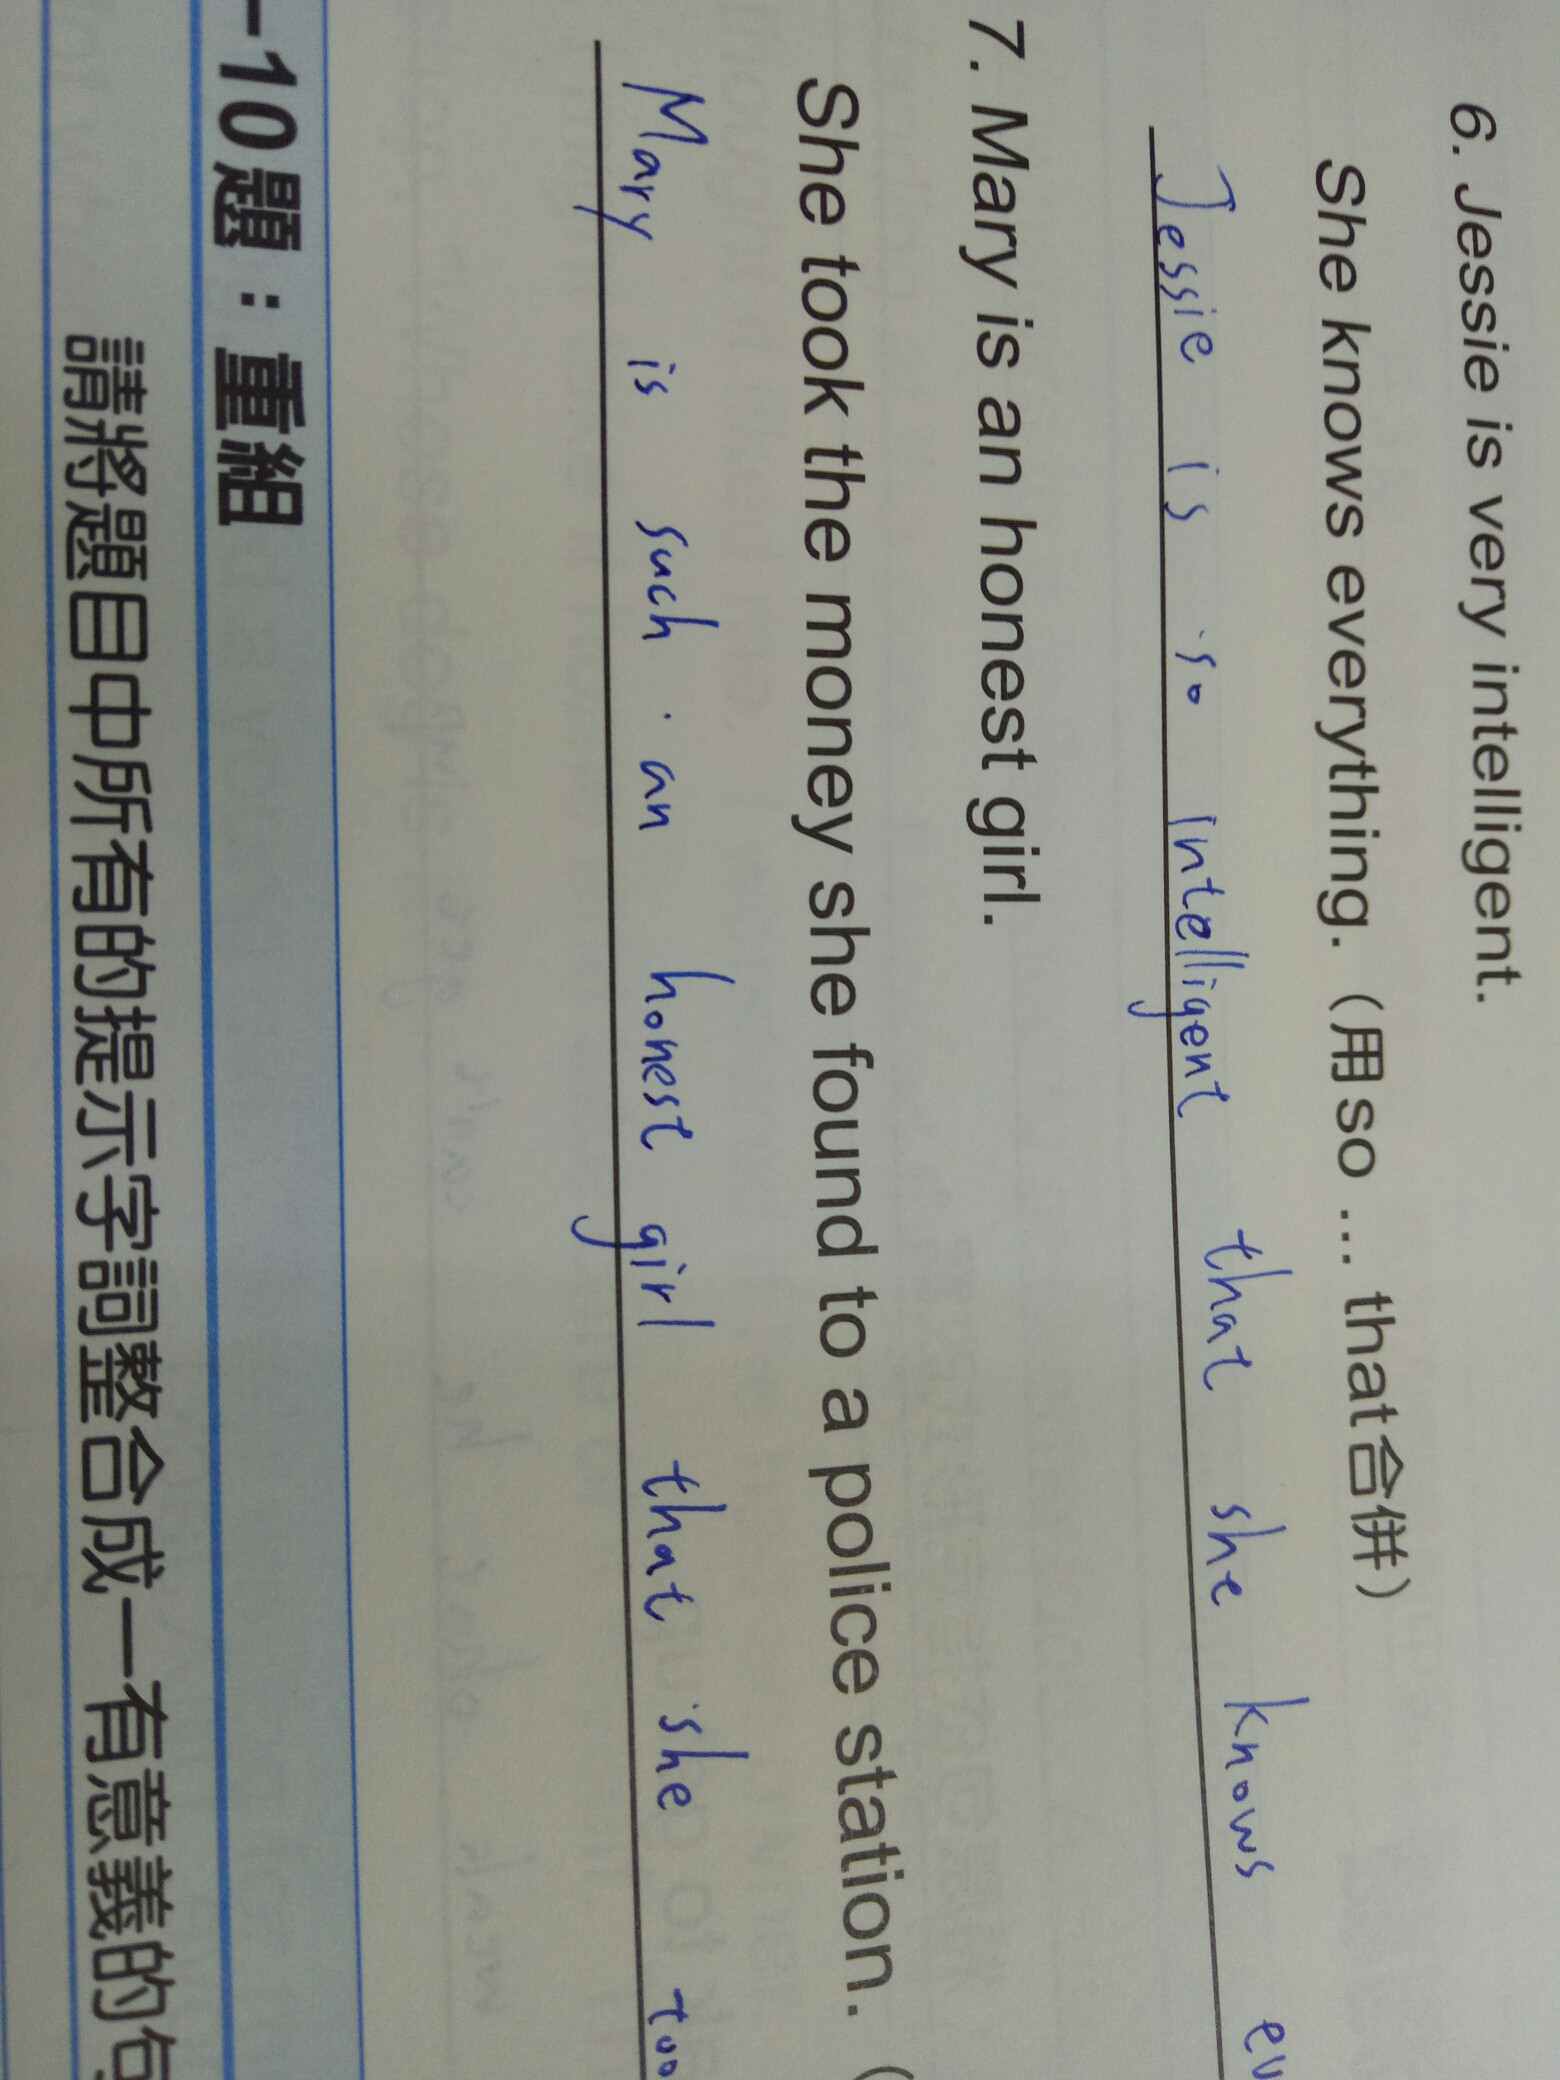 6. Jessie is very intelligent.
She knows everything.（用so ... that合併）
Jessie is so intelligent that she knows
7. Mary is an honest girl.
She took the money she found to a police station.（
Mary is such an honest girl that she
–10題：重組
請將題目中所有的提示字詞整合成一有意義的句